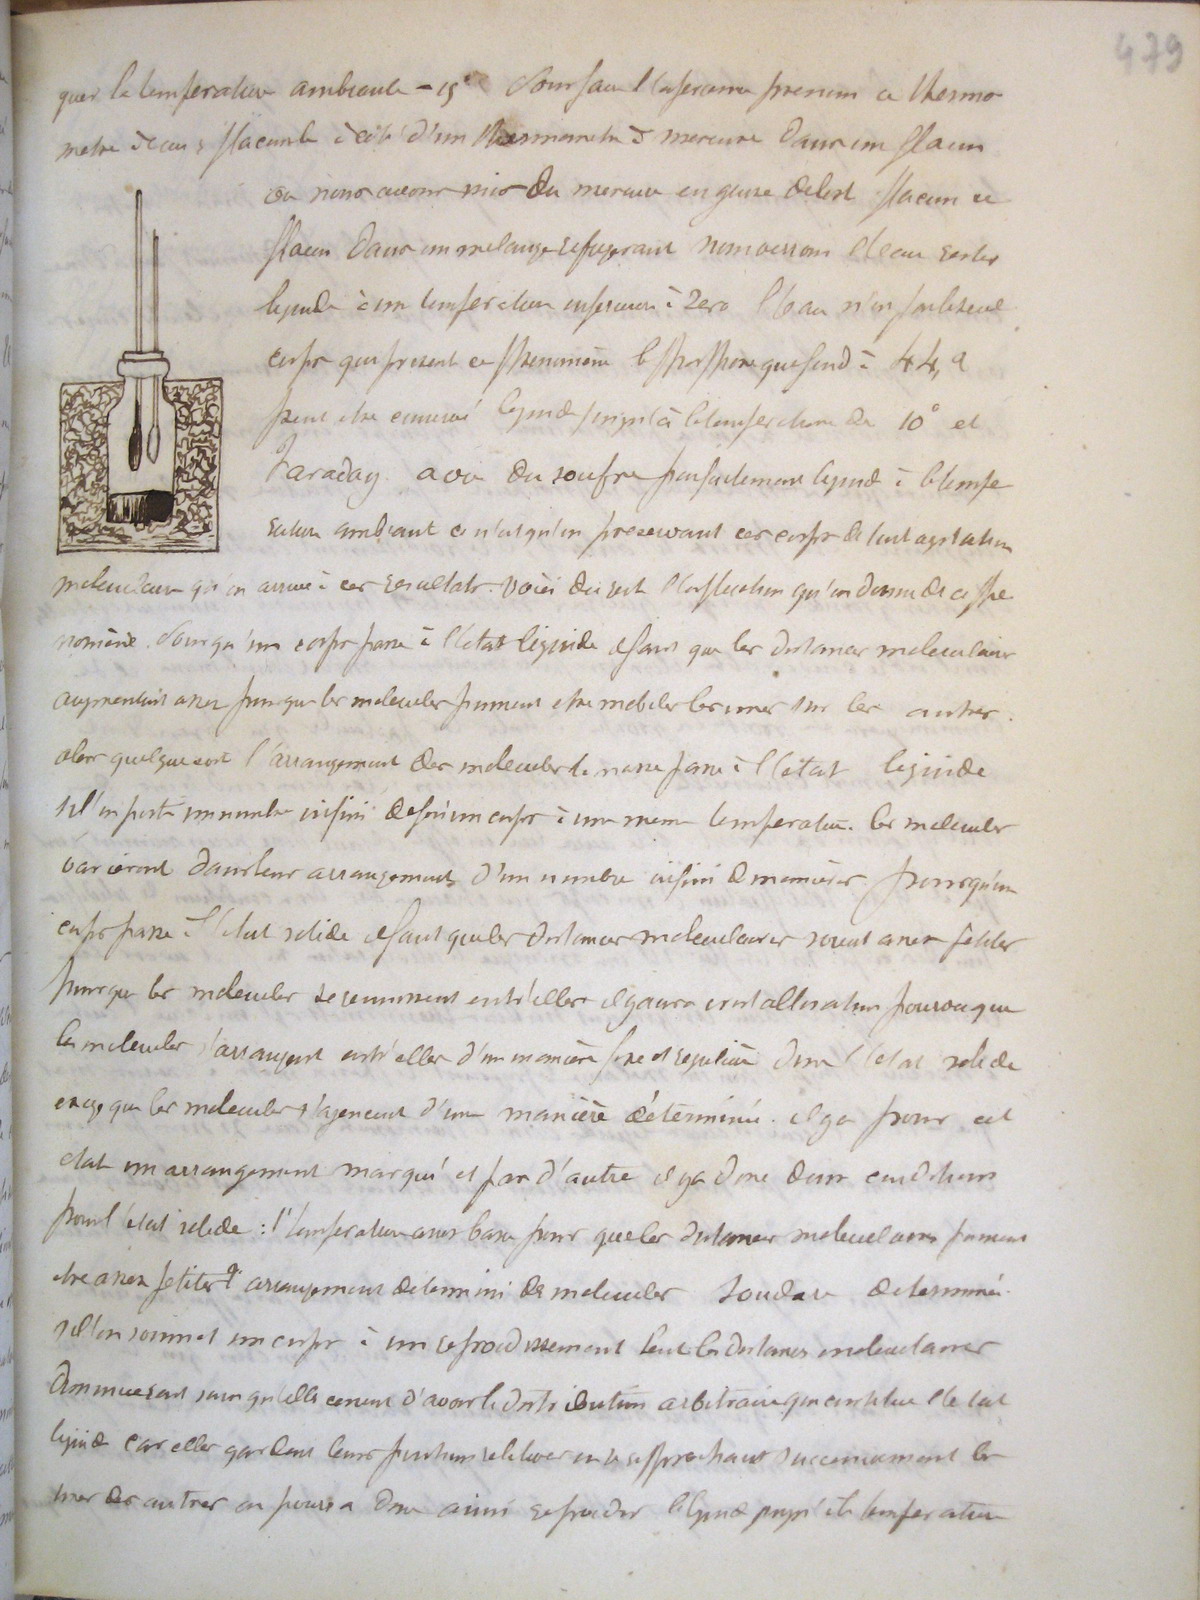 479
quer la temperature ambiante -15° Pour faire l'experience prenons ce thermo
metre à eau plaçons le à côté d'un thermometre à mercure dans un flacon
où nous avons mis du mercure en guise de lest plaçons ce
flacon dans un melange refrigerant nous verrons l'eau rester
liquide à une temperature inferieure à zero l'eau n'est pas le seul
corps qui presente ce phenomène le phosphore qui fond à 44,2
peut etre conservé liquide jusqu'à la temperature de 10° et
Faraday a vu du soufre parfaitement liquide à la tempe
rature ambiante ce n'est qu'en preservant ces corps de tout agitation
moleculaire qu'on arrive à ces resultats. Voici du reste l'explication qu'on donne de ce phe
nomène. Pour qu'un corps passe à l'état liquide il faut que les distances moleculaires
augmentent assez pour que les molecules puissent etre mobiles les unes sur les autres.
alors quelque soit l'arrangement des molecules la masse passe à l'état liquide
si l'on porte un nombre infini de fois un corps à une meme temperature. les molecules
varieront dans leur arrangement d'un nombre infini de manières pour qu'un
corps passe à l'état solide il faut que les distances moleculaires soient assez petites
pour que les molecules se reunissent entr'elles il y aura cristallisation pourvu que
les molecules s'arrangent entr'elles d'une manière fixe et regulière donc l'état solide
exige que les molecules s'agencent d'une manière déterminée. il y a pour cet
etat un arrangement marqué et pas d'autre il y a donc deux conditions
pour l'état solide : 1° temperature assez basse pour que les distances moleculaires puissent
etre assez petites 2° arrangement determiné des molecules determiné.
si l'on soumet un corps à un refroidissement lent les distances moleculaires
diminueront sans qu'elles cessent d'avoir la distribution arbitraire qui constitue l'état
liquide car elles gardent leurs positions relatives en se rapprochant successivement les
unes des autres on pourra donc ainsi refroidir le liquide jusqu'à la temperature